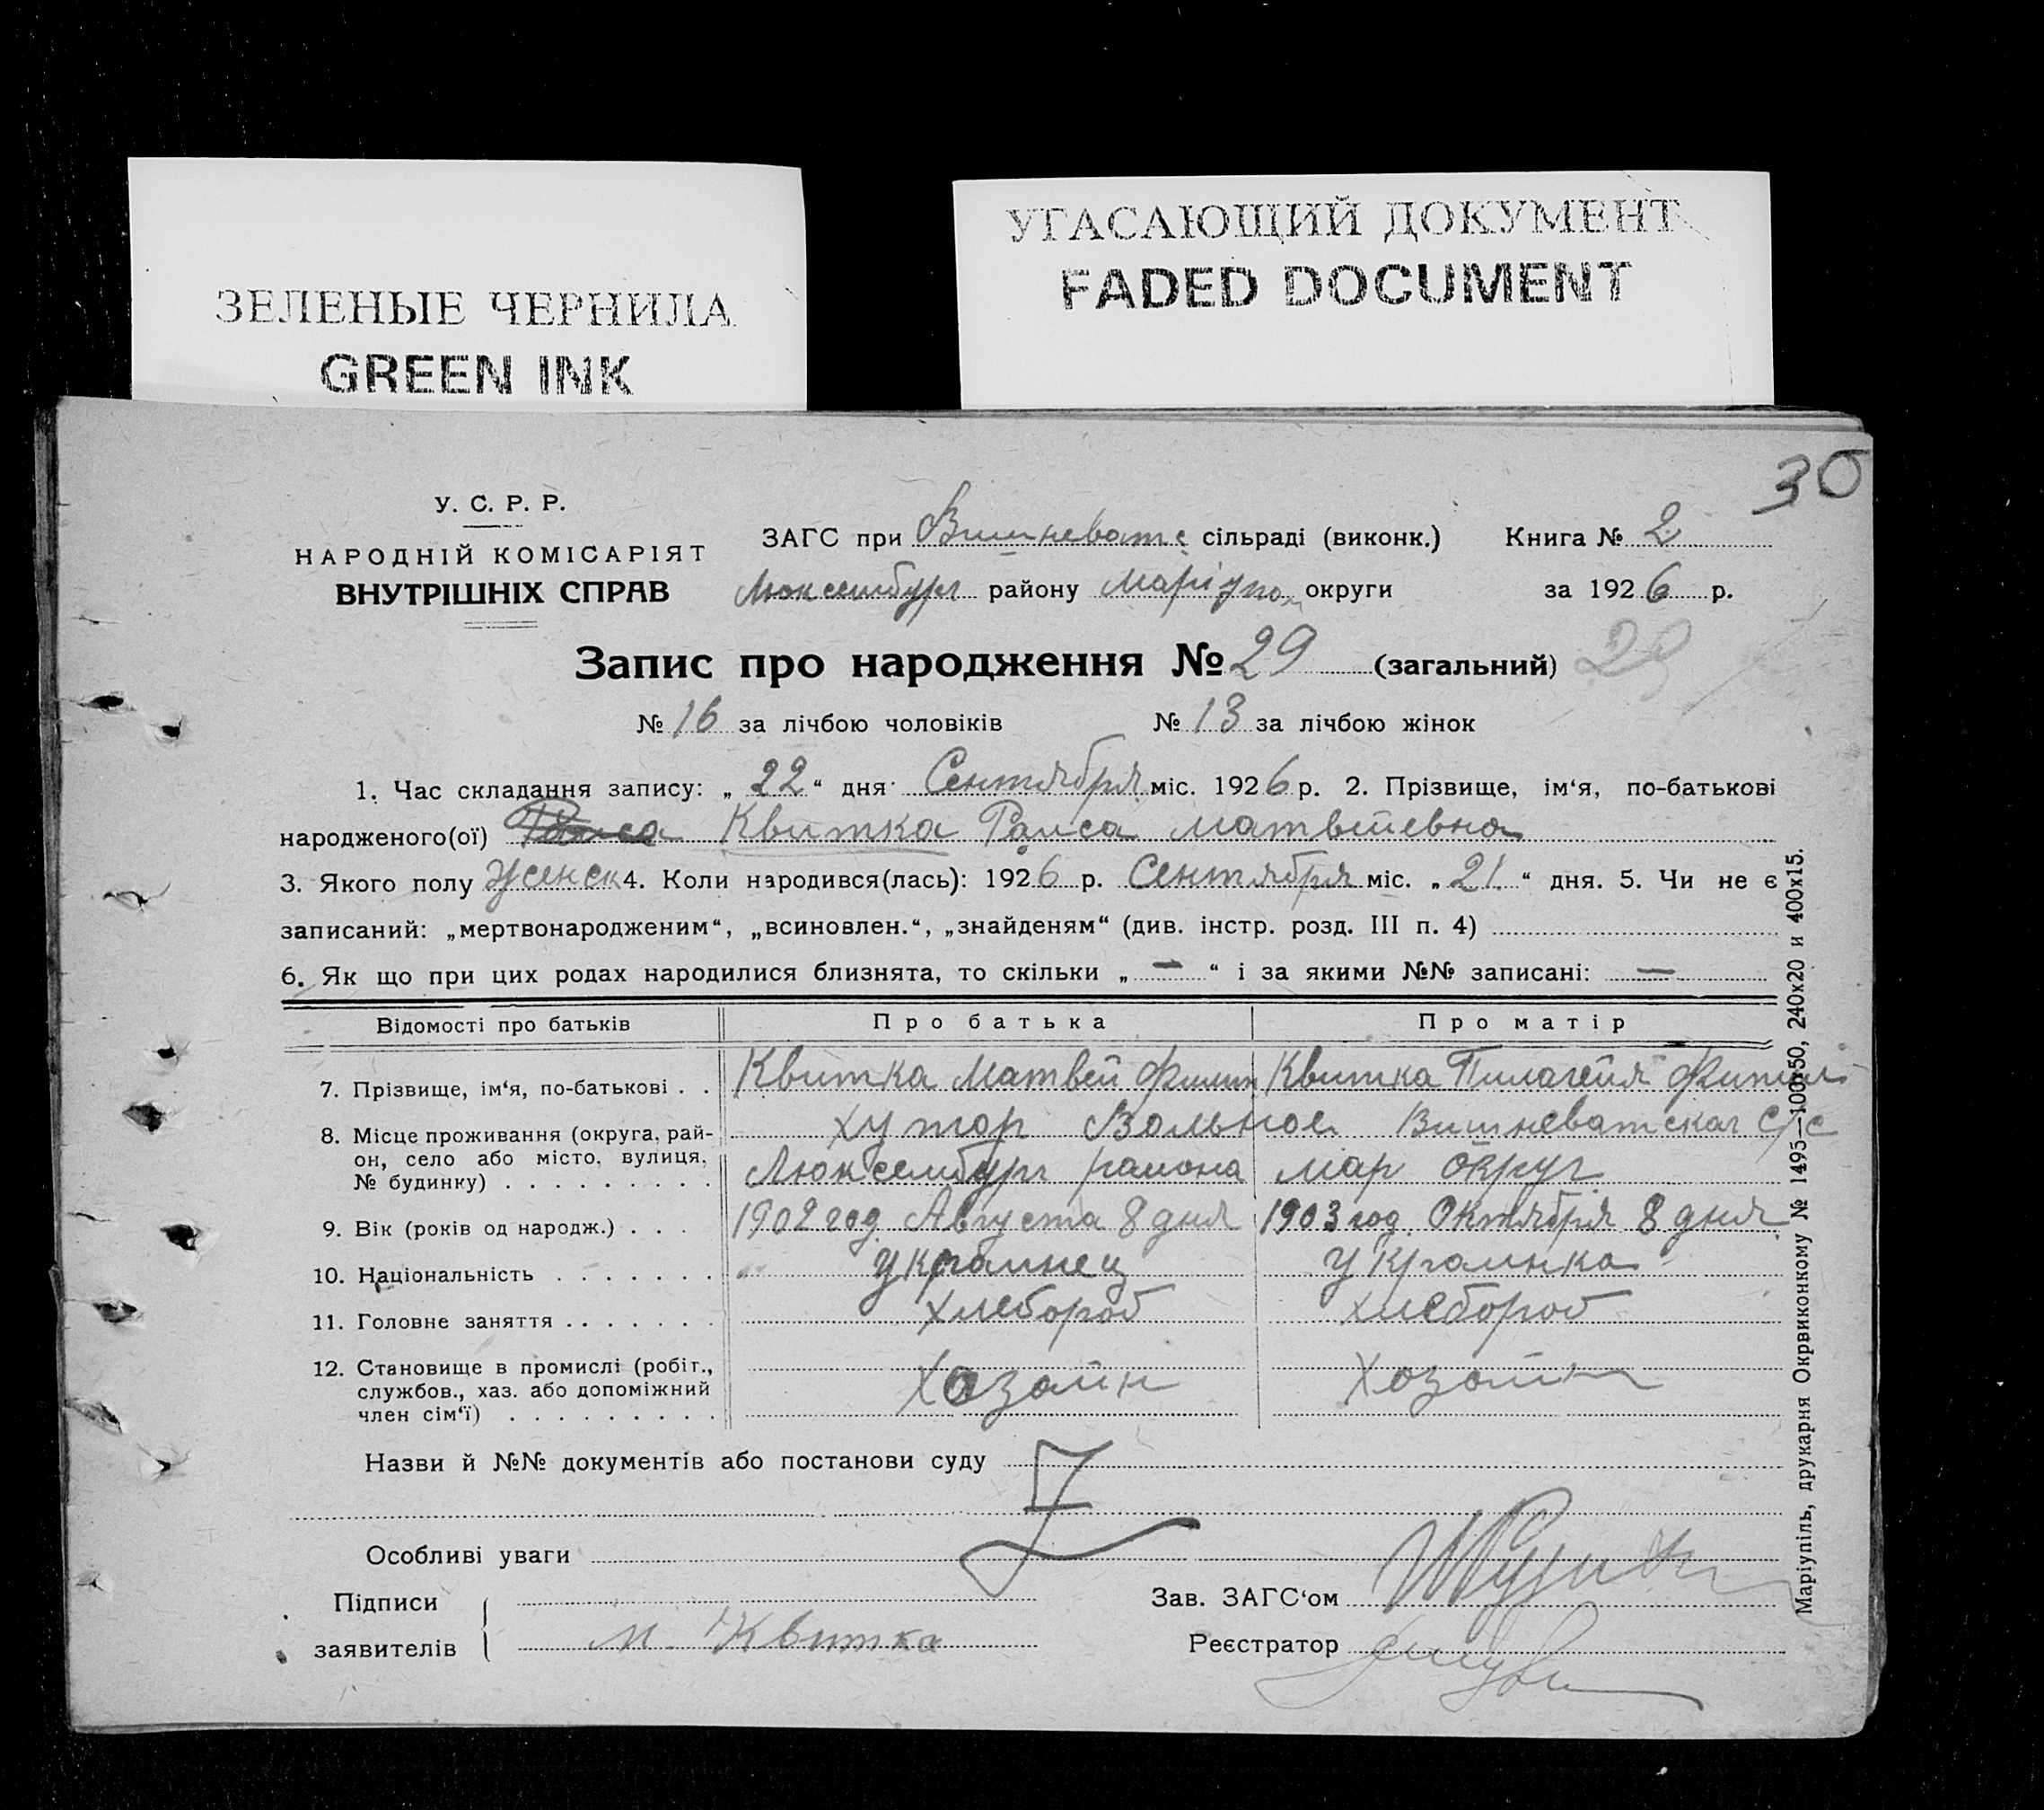 ЗЕЛЕНЫЕ ЧЕРНИЛА
GREEN INK
УГАСАЮЩИЙ ДОКУМЕНТ
FADED DOCUMENT
30
У. С. Р. Р.
НАРОДНІЙ КОМІСАРІЯТ
ВНУТРІШНІХ СПРАВ
ЗАГС при Вишневатс сільраді (виконк.) Книга № 2
Люксембург району Маріупол округи за 1926 р.
Запис про народження № 29 (загальний) 29
№ 16 за лічбою чоловіків № 13 за лічбою жінок
1. Час складання запису: „ 22 “ дня Сентября міс. 1926 р. 2. Прізвище, ім‘я, по-батькові
народженого(ої) Квитка Раиса Матвеевна
3. Якого полу женск 4. Коли народився(лась): 1926 р. Сентября міс. „ 21 “ дня. 5. Чи не є
записаний: „мертвонародженим“, „всиновлен.“, „знайденям“ (див. інстр. розд. III п. 4)
6. Як що при цих родах народилися близнята, то скільки „ — “ і за якими №№ записані: —
Відомості про батьків Про батька Про матір
7. Прізвище, ім‘я, по-батькові . . Квитка Матвей Филип Квитка Пилагейя
8. Місце проживання (округа, рай-
он, село або місто, вулиця,
№ будинку) . . . . . . . . .
хутор Вольное Вишневатскаг с/с
Люксембург района мар округ
9. Вік (років од народж.) . . . 1902 год Августа 8 дня 1903 год Октября 8 дня
10. Національність . . . . . . . украинец украинка
11. Головне заняття . . . . . . . хлебороб хлебороб
12. Становище в промислі (робіт.,
службов., хаз. або допоміжний
член сім‘ї) . . . . . . . . .
Хозаин Хозаин
Назви й №№ документів або постанови суду
Особливі уваги
Підписи
заявителів
М. Квитка
Зав. ЗАГС‘ом
Реєстратор
Маріупіль, друкарня Окрвиконкому № 1495—100x50, 240x20 и 400x15.